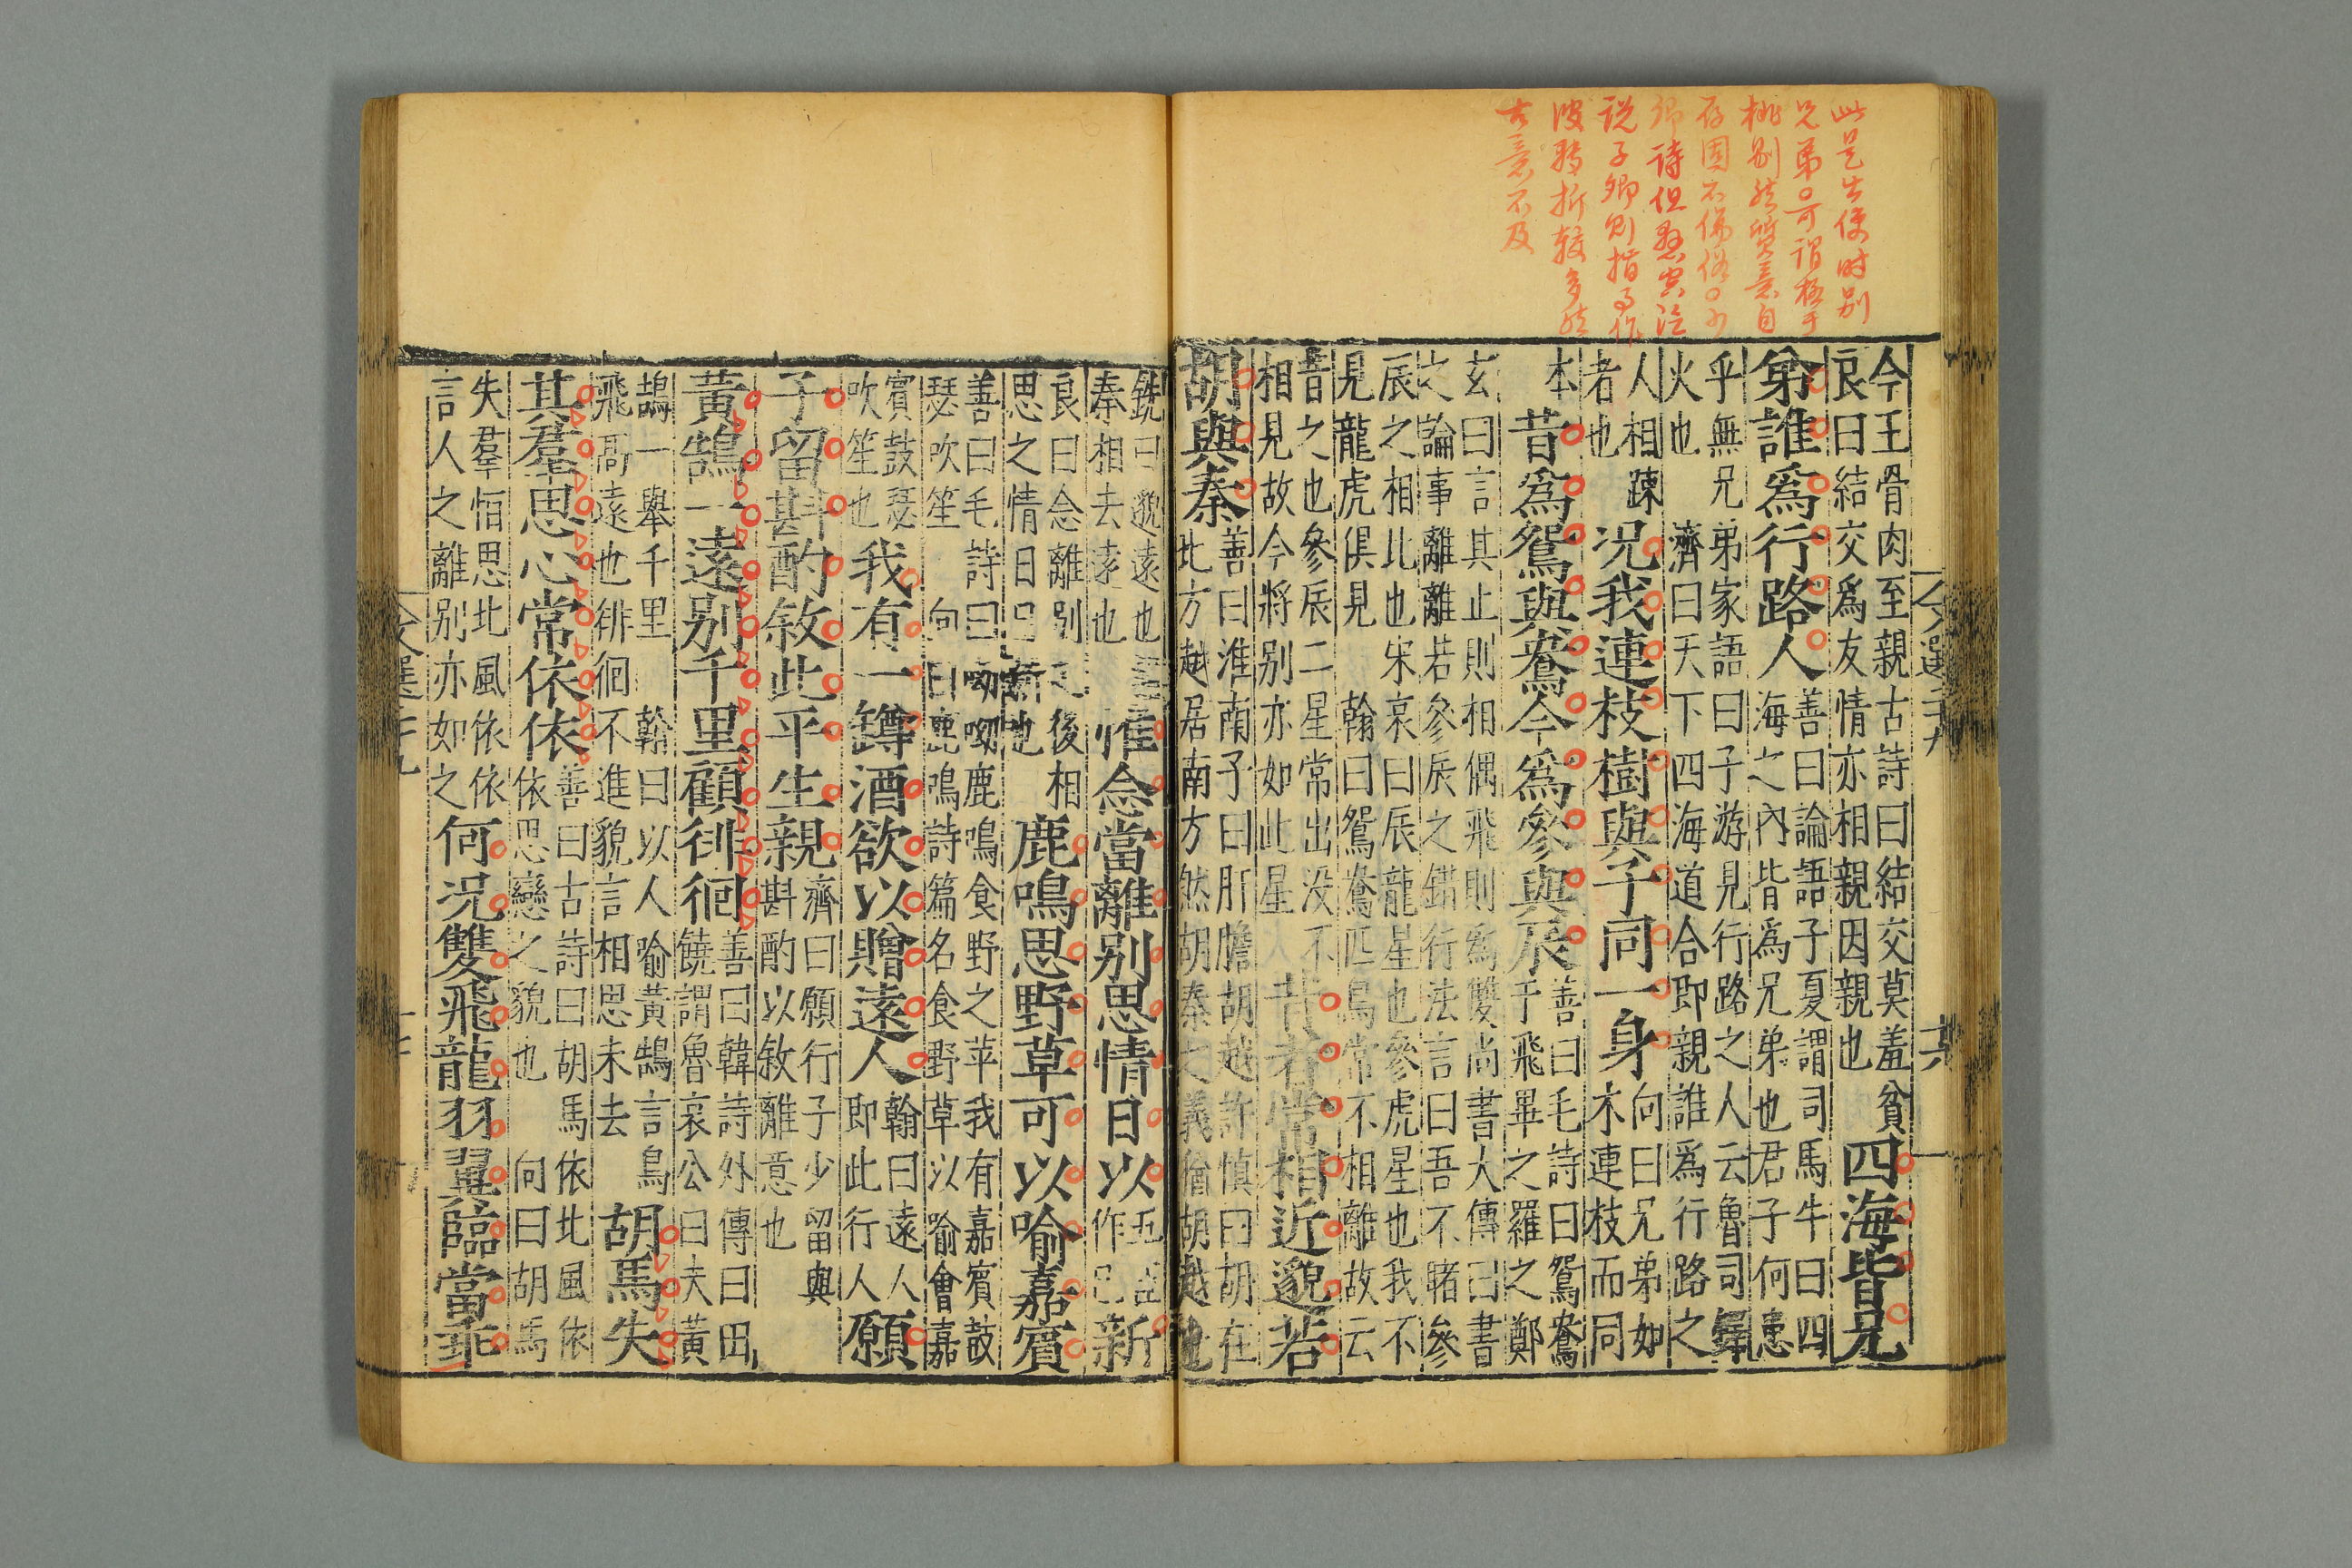 此是出使时别
兄弟可谓極于
桃别然質意自
存固不傷俗少
卿詩但懸空泛
说子卿则指事作
波轉折較多然
古意不及
今王骨肉至親古詩曰結交莫羞貧
良曰結交爲友情亦相親因親也
四海皆兄
弟誰爲行路人
善曰論語子夏謂司馬牛曰四
海之内皆爲兄弟也君子何患
乎無兄弟家語曰子游見行路之人云魯司鐸
火也濟曰天下四海道合即親誰爲行路之
人相踈
者也
况我連枝樹與子同一身
向曰兄弟如
木連枝而同
本
昔爲鴛與鴦今爲參與辰
善曰毛詩曰鴛鴦
于飛畢之羅之鄭
玄曰言其止則相偶飛則爲雙尚書大傳曰書
之論事離離若參辰之錯行法言曰吾不睹參
辰之相比也宋哀曰辰龍星也參虎星也我不
見龍虎俱見翰曰鴛鴦匹鳥常不相離故云
昔之也參辰二星常出没不
相見故今將别亦如此星
昔者常相近邈若
胡與秦
善曰淮南子曰肝膽胡越許慎曰胡在
北方越居南方然胡秦之義猶胡越也
銑曰邈遠也
秦相去遠也
惟念當離别思情日以新
五臣
作己
良曰念離别之後相
思之情日已新也
鹿鳴思野草可以喻嘉賓
善曰毛詩曰呦呦鹿鳴食野之苹我有嘉賓鼓
瑟吹笙向曰鹿鳴詩篇名食野草以喻會嘉
賓鼓瑟
吹笙也
我有一罇酒欲以贈遠人
翰曰遠人
即此行人
願
子留斟酌敘此平生親
濟曰願行子少留與
斟酌以敘離意也
黃鵠一遠别千里顧徘徊
善曰韓詩外傳曰田
饒謂魯哀公曰夫黃
鵠一舉千里翰曰以人喻黃鵠言鳥
飛高遠也徘徊不進貌言相思未去
胡馬失
其羣思心常依依
善曰古詩曰胡馬依北風依
依思戀之貌也向曰胡馬
失羣恒思北風依依
言人之離别亦如之
何况雙飛龍羽翼臨當乖